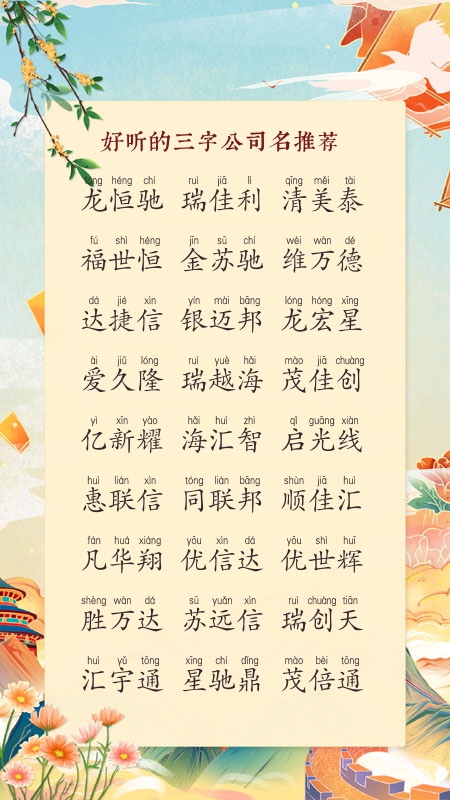 好听的三字公司名推荐
lóng héng chí ruì jiā lì qīng měi tài
龙恒驰 瑞佳利 清美泰
fú shì héng jīn sū chí wéi wàn dé
福世恒 金苏驰 维万德
dá jié xìn yín mài bāng lóng hóng xīng
达捷信 银迈邦 龙宏星
ài jiǔ lóng ruì yuè hǎi mào jiā chuàng
爱久隆 瑞越海 茂佳创
yì xīn yào hǎi huì zhì qǐ guāng xiàn
亿新耀 海汇智 启光线
huì lián xìn tóng lián bāng shùn jiā huì
惠联信 同联邦 顺佳汇
fán huá xiáng yōu xìn dá yōu shì huī
凡华翔 优信达 优世辉
shèng wàn dá sū yuǎn xìn ruì chuàng tiān
胜万达 苏远信 瑞创天
huì yǔ tōng xīng chí dǐng mào bèi tōng
汇宇通 星驰鼎 茂倍通